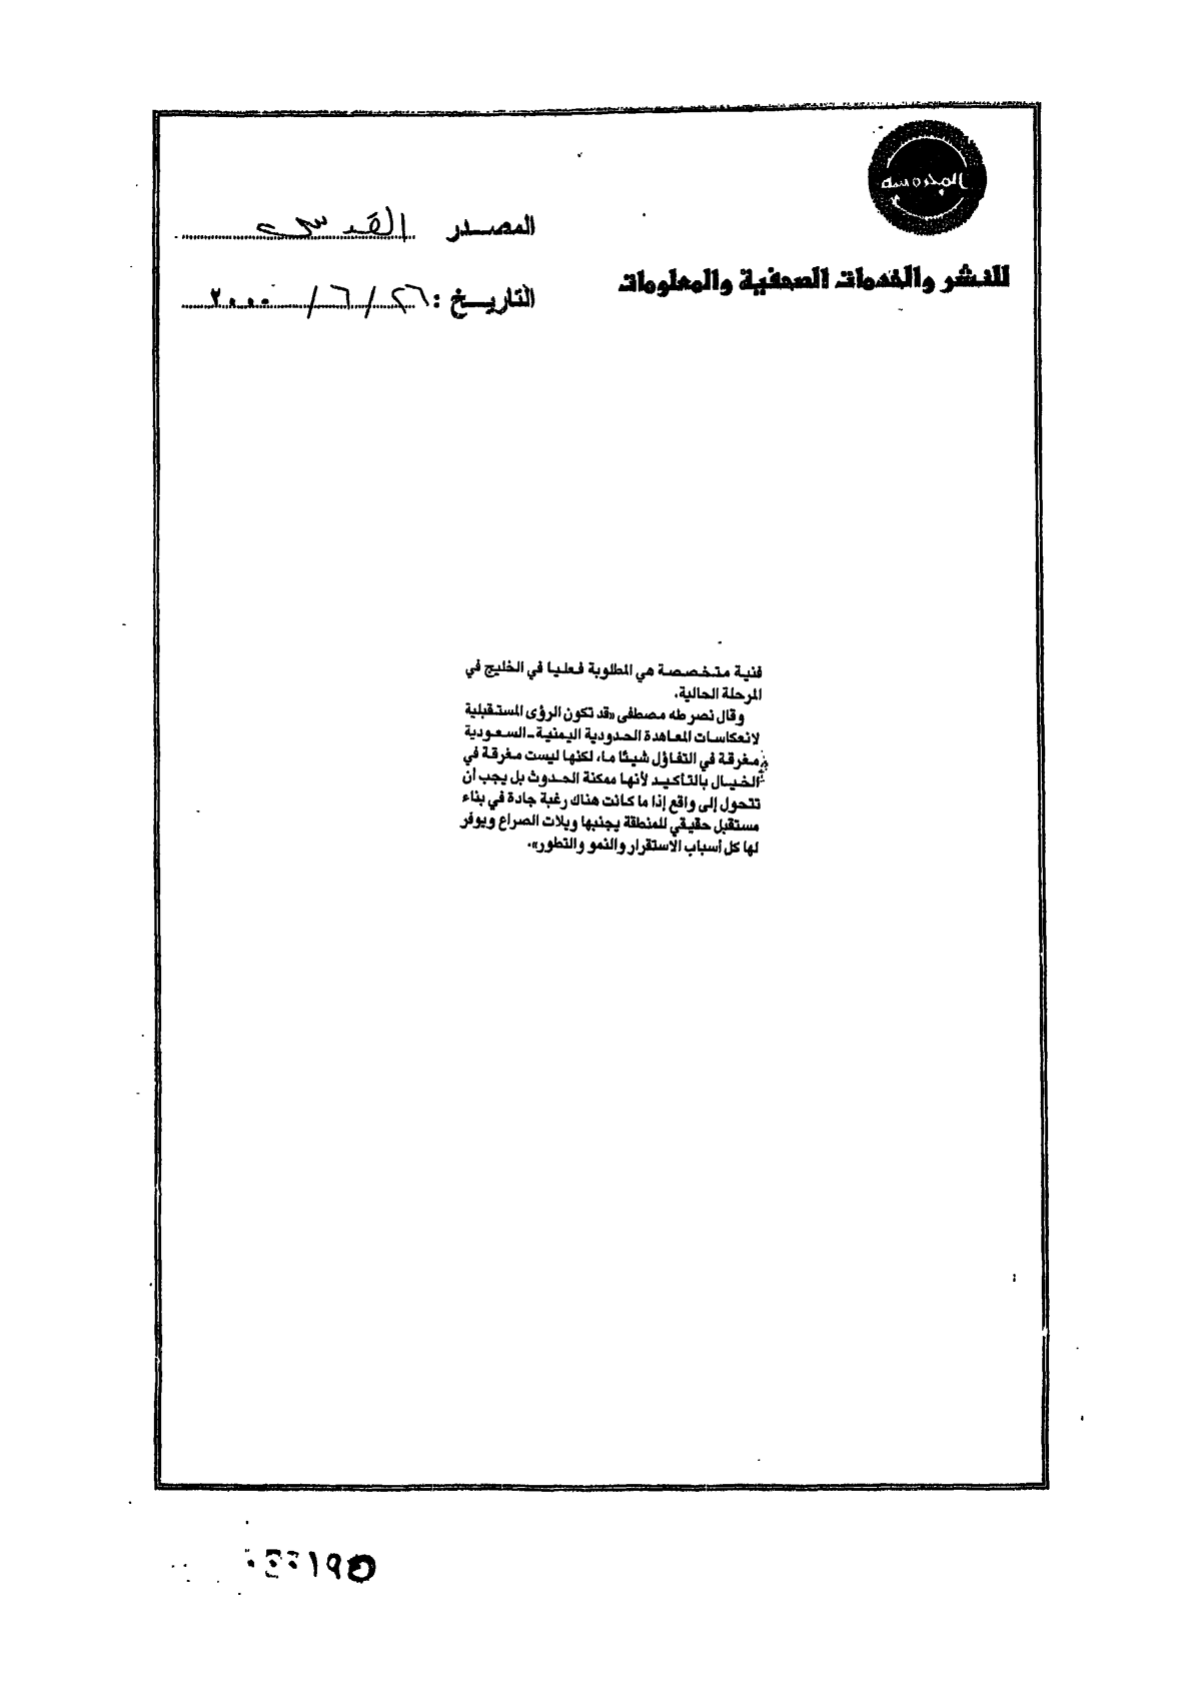 المحروسة
المصدر القدس
للنشر والخدمات الصحفية والمعلومات
التاريخ : ٢٦/٦/٢٠٠٠
فنية متخصصة هي المطلوبة فعليا في الخليج في
المرحلة الحالية.
وقال نصر طه مصطفى «قد تكون الرؤى المستقبلية
لانعكاسات المعاهدة الحدودية اليمنية-السعودية
مغرقة في التفاؤل شيئا ما، لكنها ليست مغرقة في
الخيال بالتأكيد لأنها ممكنة الحدوث بل يجب ان
تتحول إلى واقع إذا ما كانت هناك رغبة جادة في بناء
مستقبل حقيقي للمنطقة يجنبها ويلات الصراع ويوفر
لها كل أسباب الاستقرار والنمو والتطور».